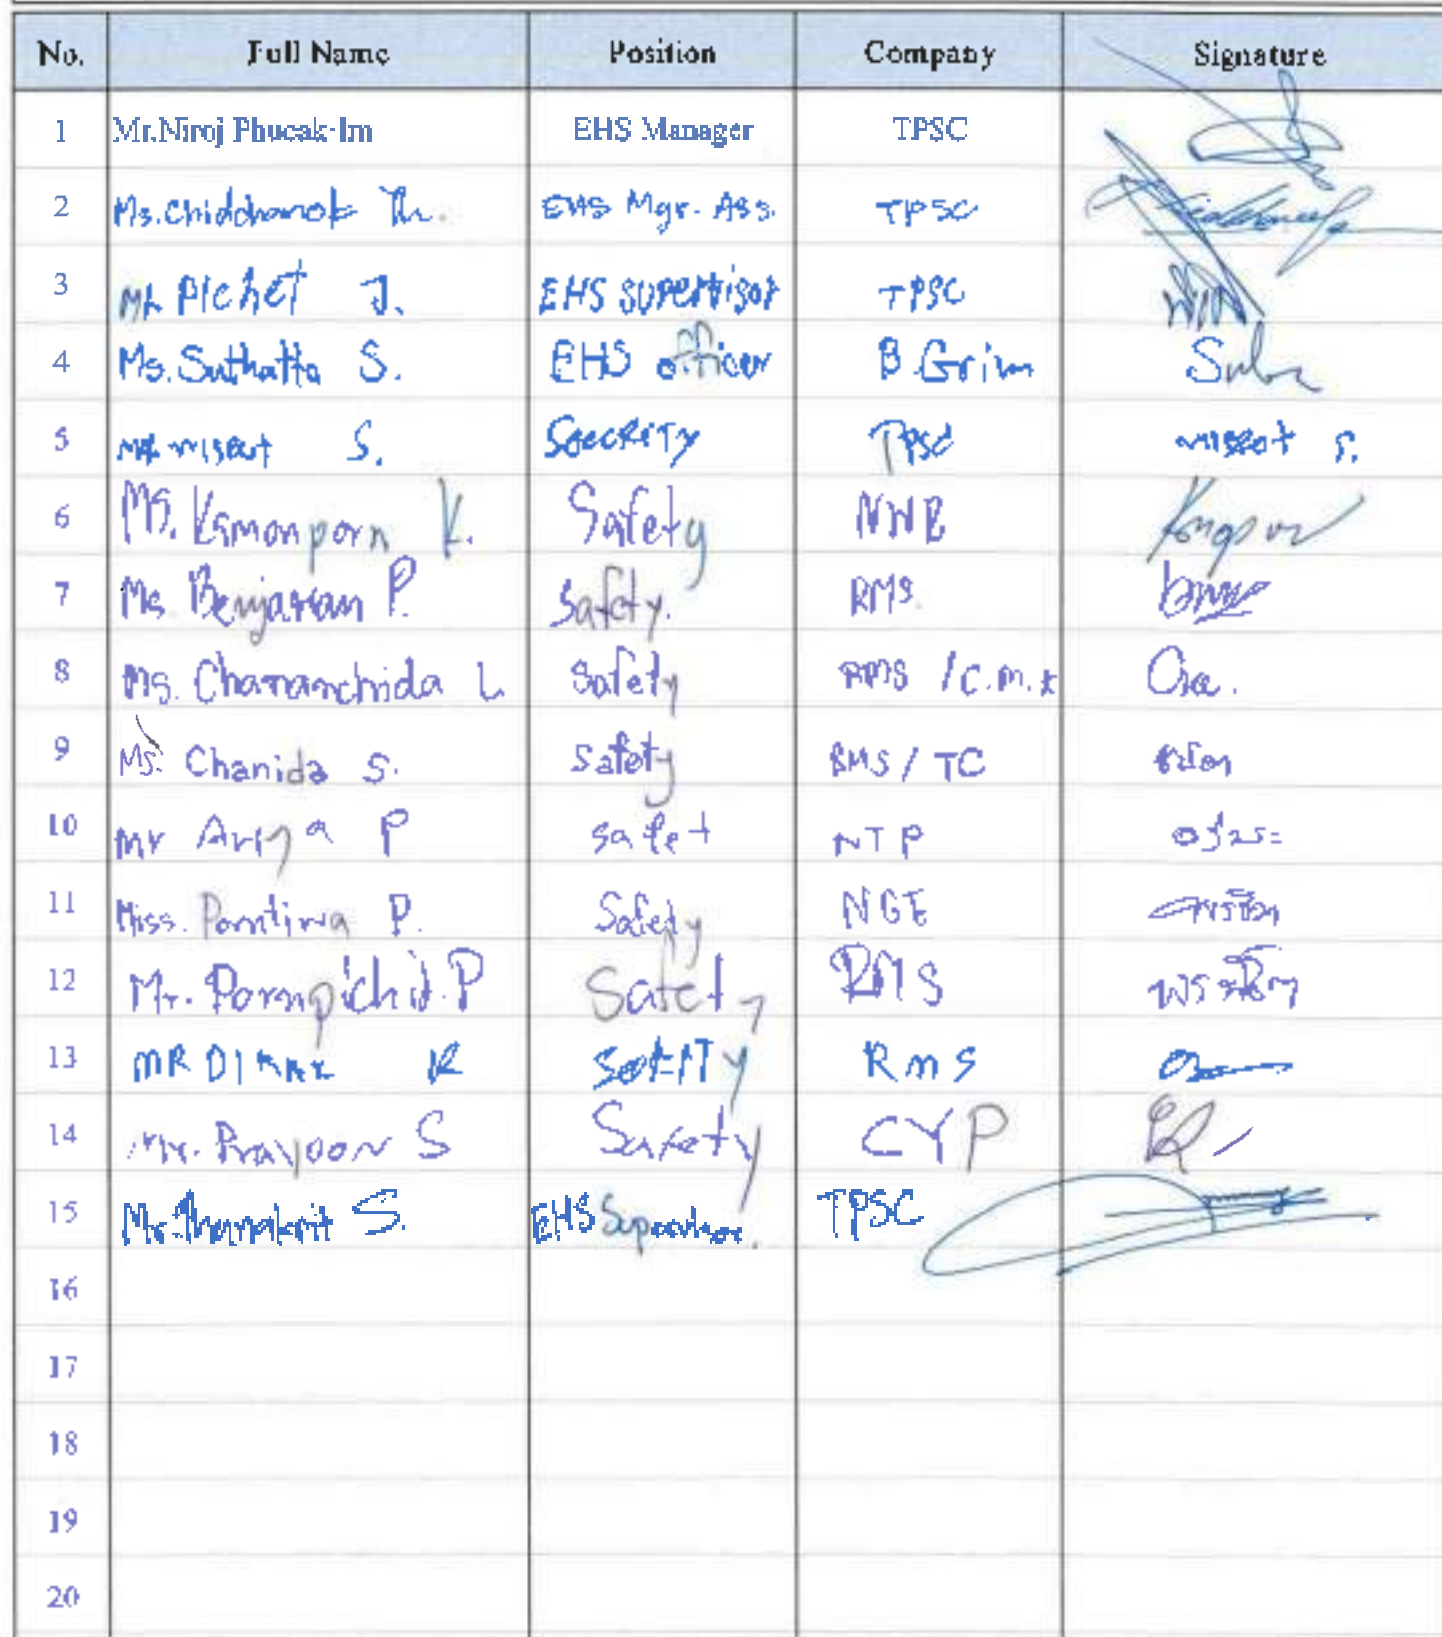 No. Full Name Position Company Signature
1 Mr.Niroj Phueak-Im EHS Manager TPSC
2 Ms.Chidchanok Th. EHS Mgr. Ass. TPSC
3 Mr Pichet J. EHS Supervisor TPSC WIN
4 Ms. Suthatta S. EHS officer B.Grim
5 S. TPSC S.
6 MS. Kamonporn K. Safety NWR
7 Ms. Benjawan P. Safety. RMS
8 Ms. Chananchida L Safety RMS /C.M.K
9 Ms. Chanida S. Safety RMS / TC ชนิดา
10 Mr Ariya P Safet NTP อริยะ
11 Miss. Porntiwa P. Safety NGE พรธิวา
12 Mr. Pornpichit.P Safety RMS พรพิชิต
13 MR K RMS
14 Mr. Prayoon S Safety CYP
15 Mr.Thanakrit S. EHS Supervisor. TPSC
16
17
18
19
20